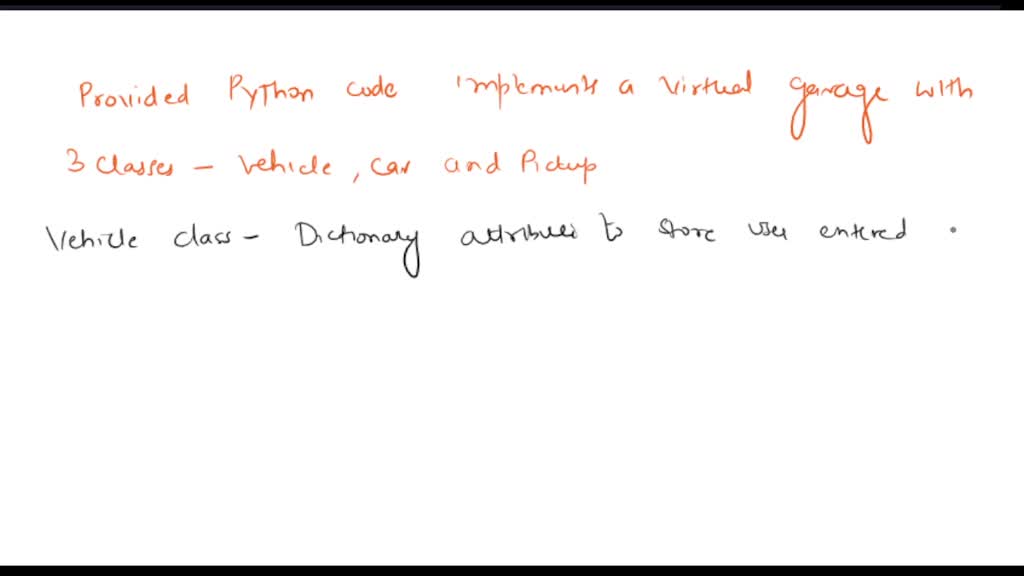 Provided Python code implements a virtual garage with
3 classes - Vehicle, Car and Pickup
Vehicle class - Dictionary attributes to store user entered